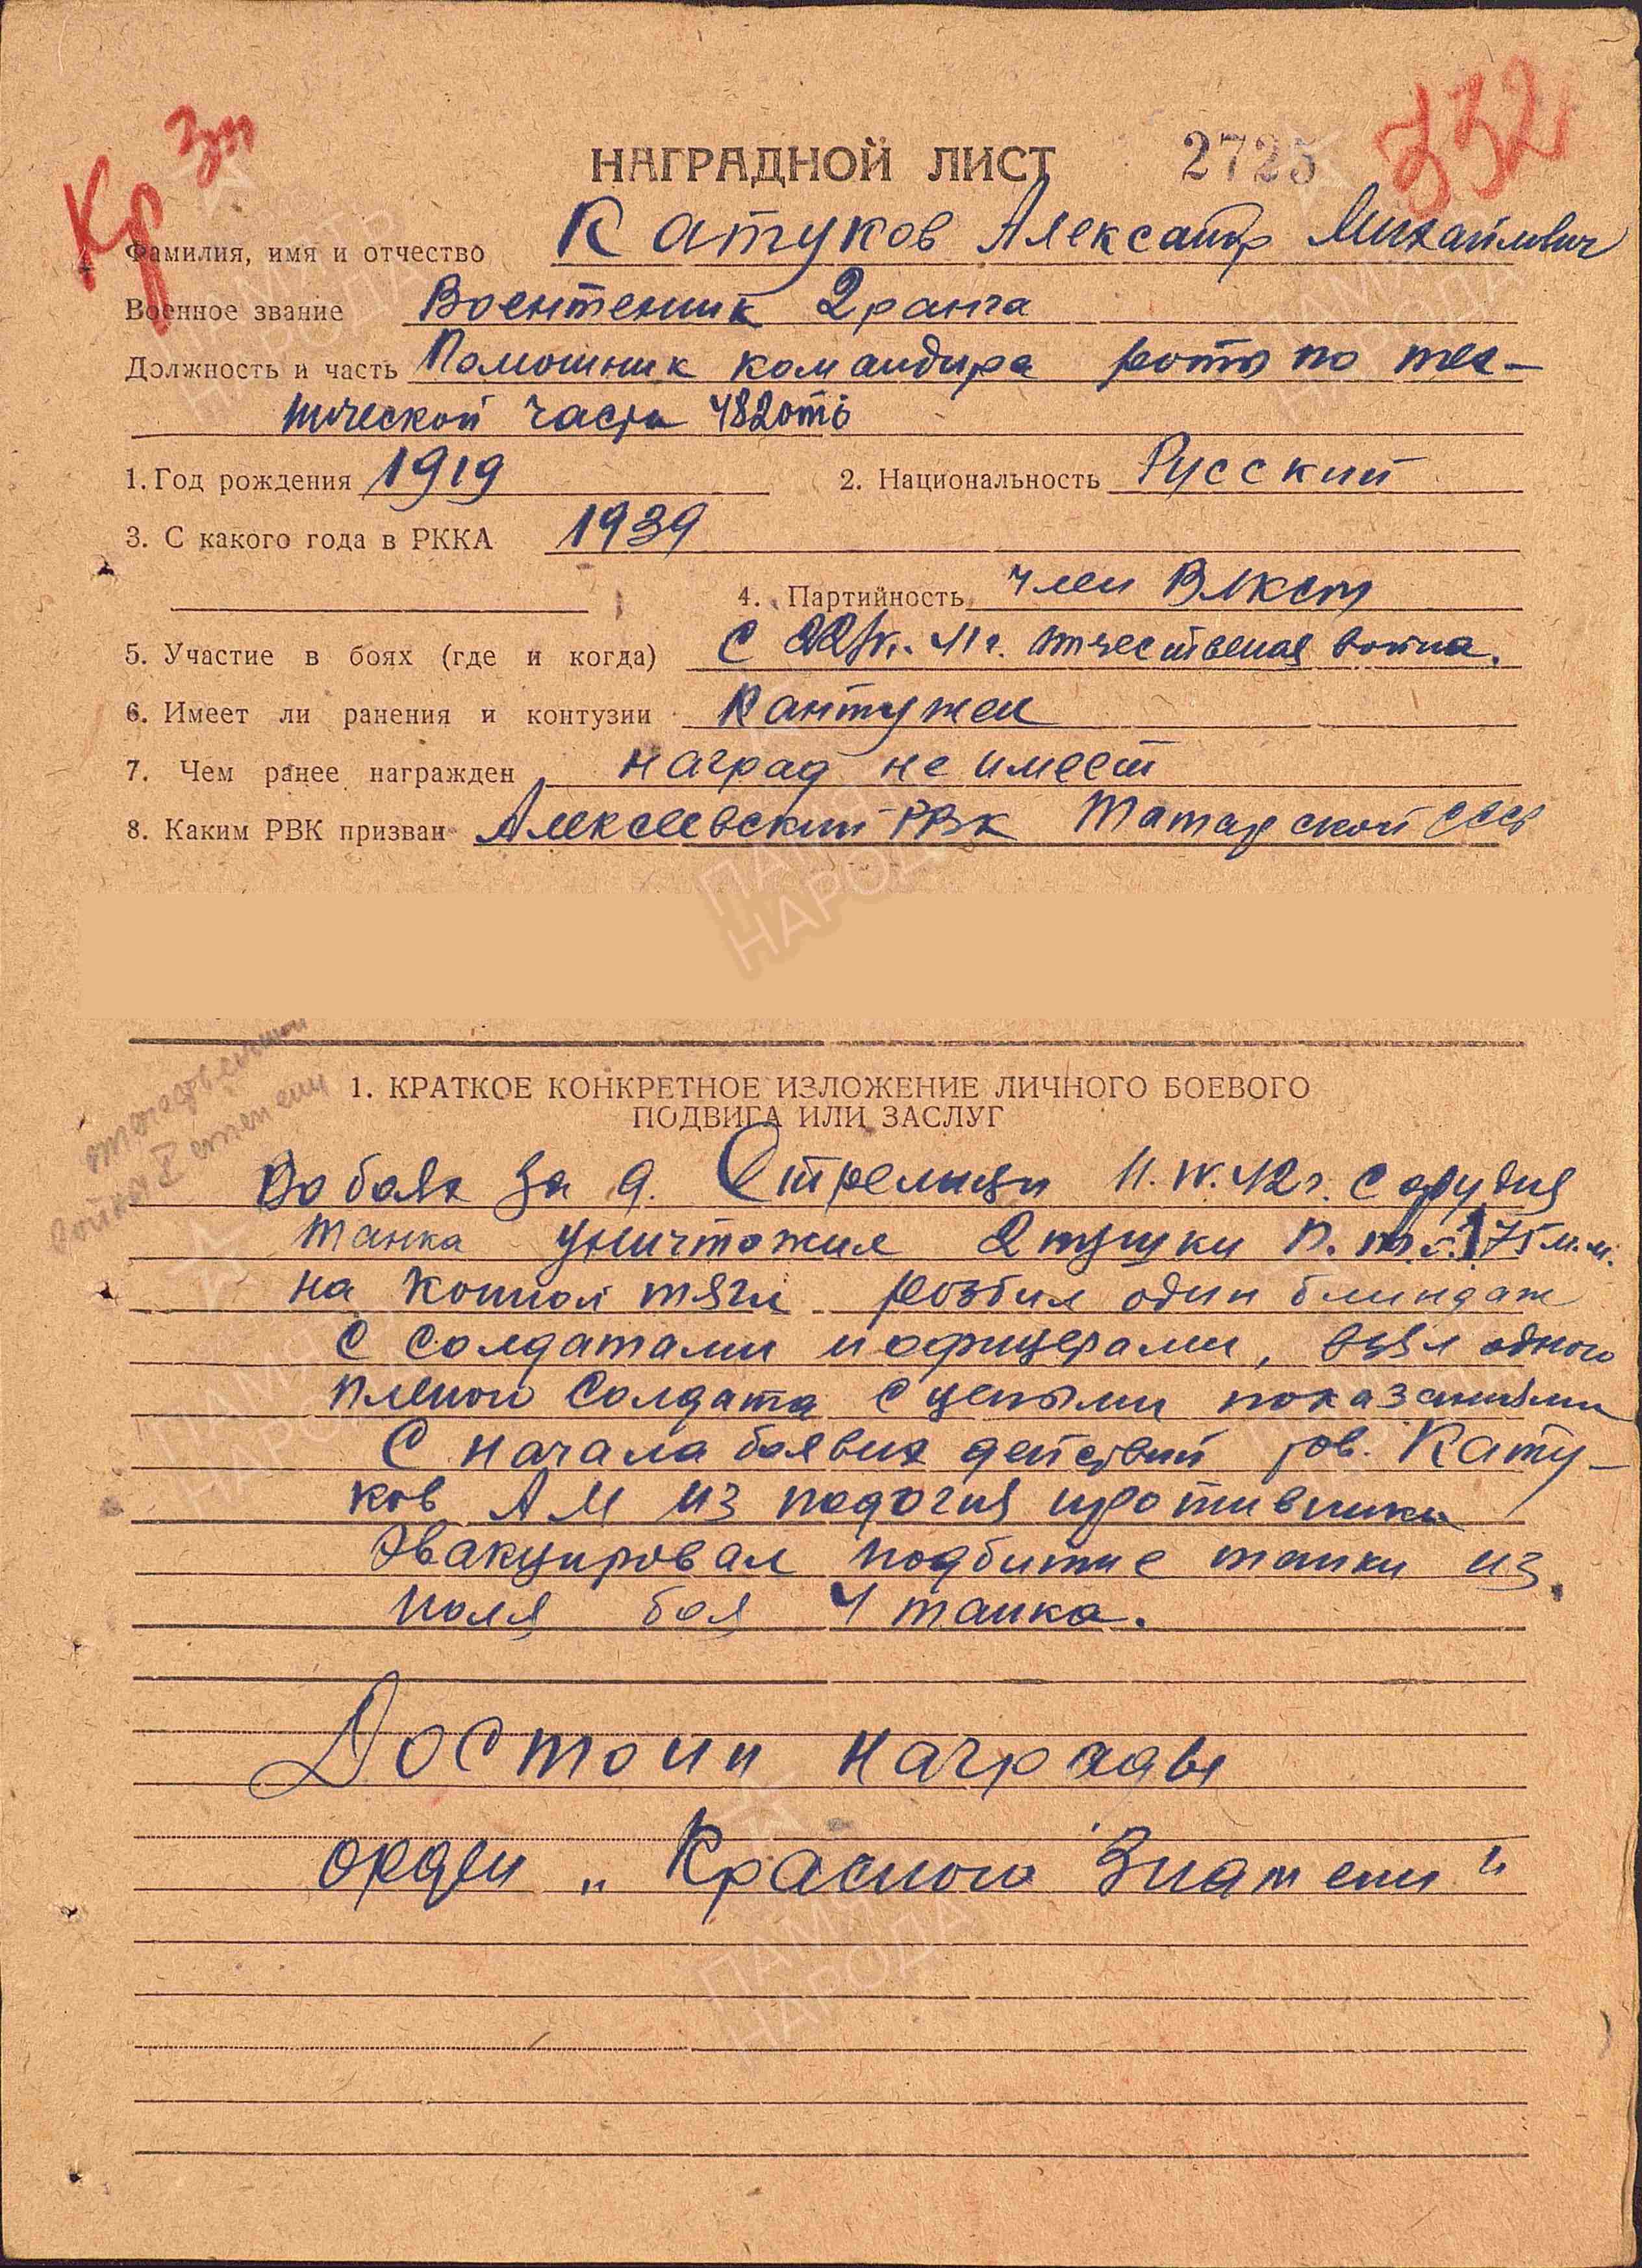 Кр Зн
НАГРАДНОЙ ЛИСТ 2725 332
Фамилия, имя и отчество Катуков Александр Михайлович
Военное звание Воентехник 2 ранга
Должность и часть Помошник командира роты по тех-
нической части 482 отб
1. Год рождения 1919 2. Национальность Русский
3. С какого года в РККА 1939
4. Партийность член ВЛКСМ
5. Участие в боях (где и когда) С 41 г. отечественая война.
6. Имеет ли ранения и контузии Кантужен
7. Чем ранее награжден наград не имеет
8. Каким РВК призван Алексеевский РВК Татарской ССР
отечественной
войны I степени
1. КРАТКОЕ КОНКРЕТНОЕ ИЗЛОЖЕНИЕ ЛИЧНОГО БОЕВОГО
ПОДВИГА ИЛИ ЗАСЛУГ
Во боях за д. Стрелицы 11.IV.42 г. с орудия
танка уничтожил 2 пушки п. т. 75 м.м.
на конной тяги розбил один блиндаж
с солдатами и офицерами, взял одного
пленого солдата с цеными показаниями
С начала боявых действий тов. Кату-
ков А М из подогня противника
эвакуировал подбитые танки из
поля боя 4 танка.
Достоин награды
орден „Красного Знамени"
ПАМЯТЬ
НАРОДА